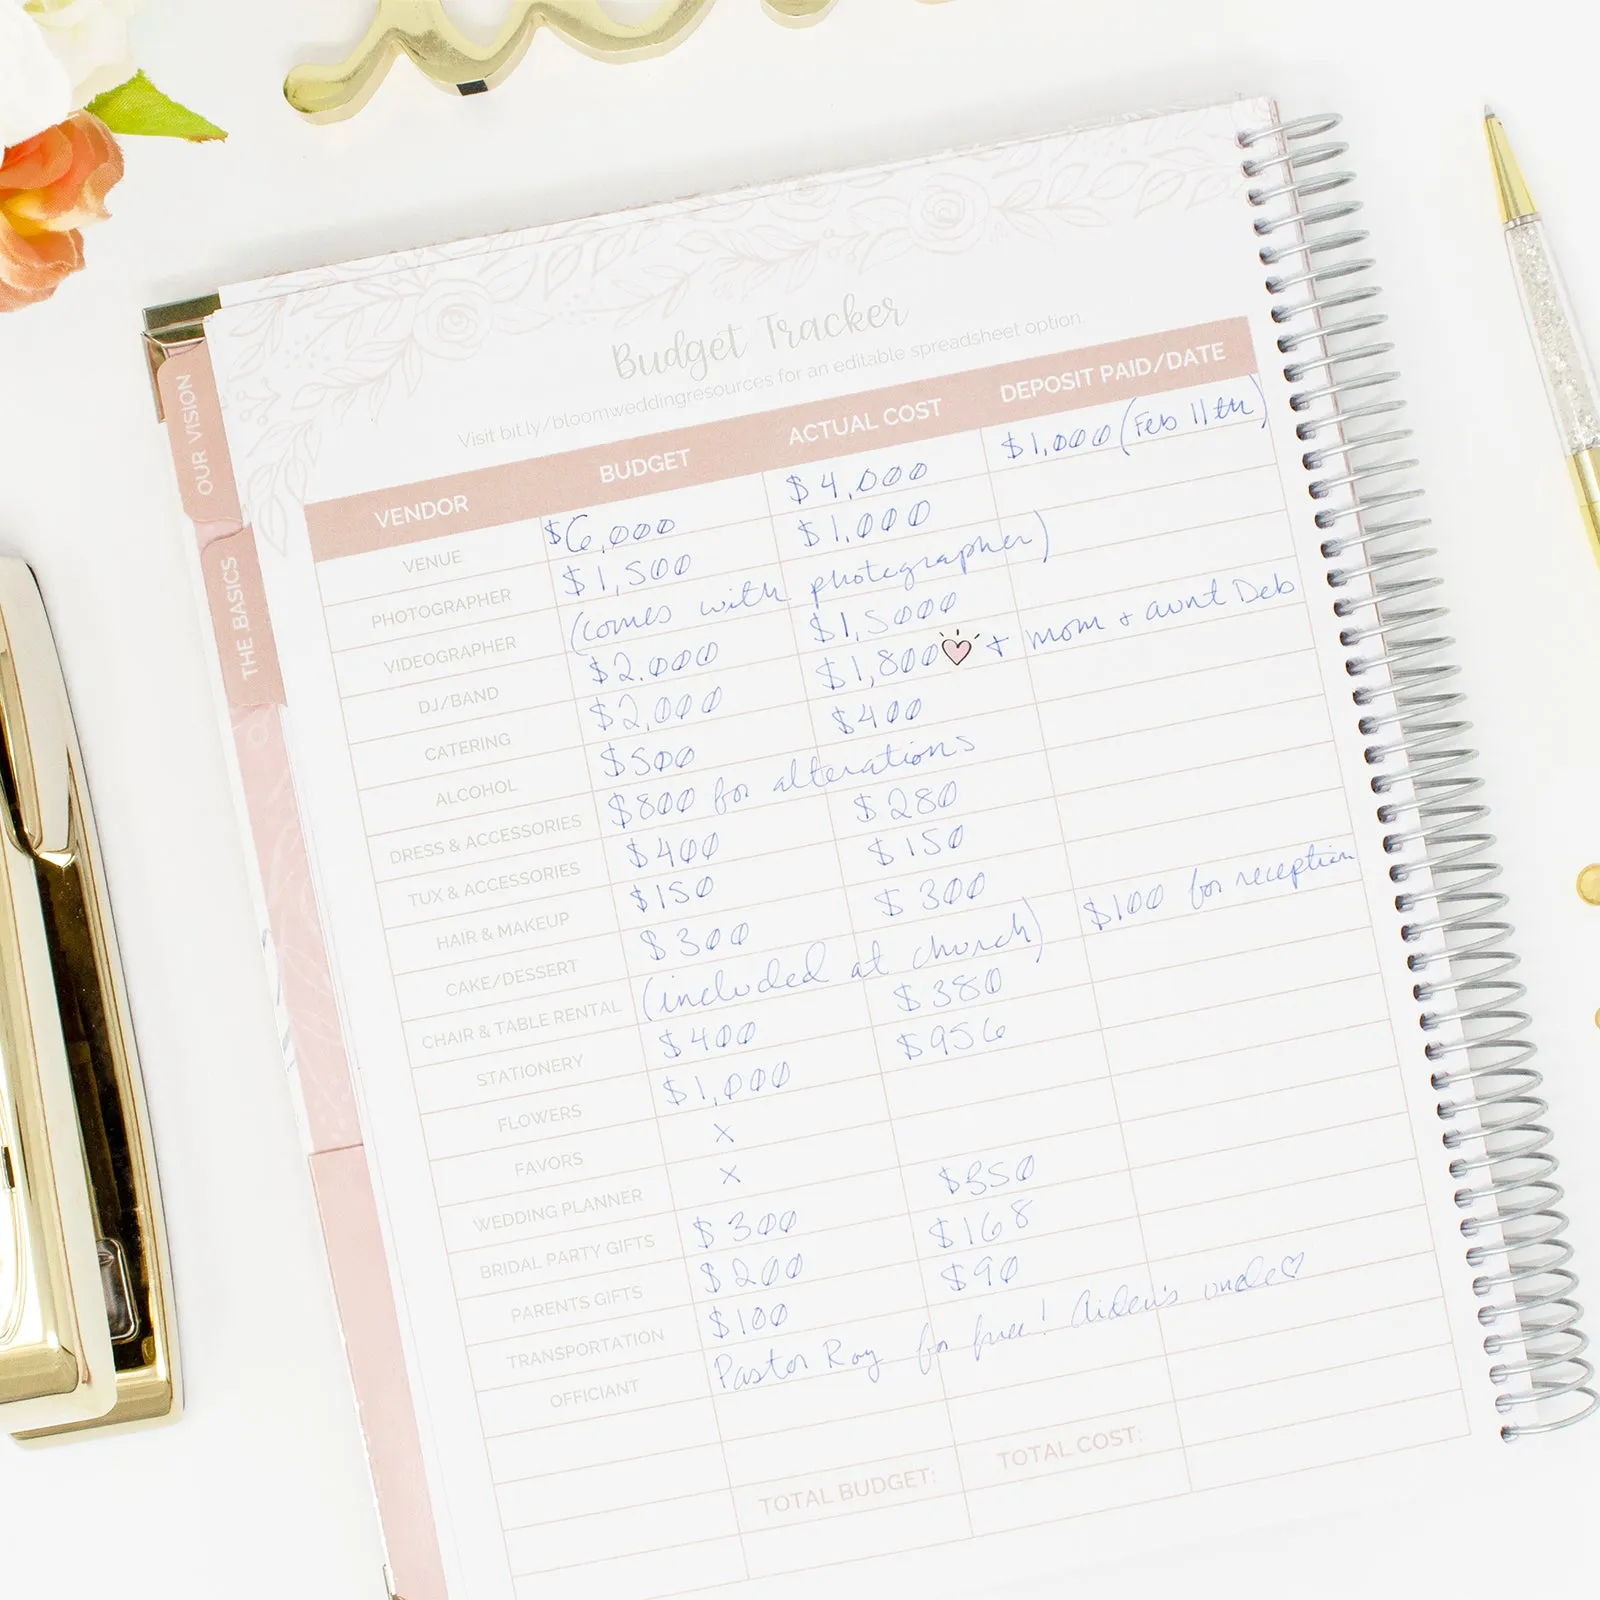 OUR VISION
THE BASICS
Budget Tracker
Visit bit.ly/bloomweddingresources for an editable spreadsheet option.
VENDOR BUDGET ACTUAL COST DEPOSIT PAID/DATE
VENUE $6,000 $4,000 $1,000 (Feb 11th)
PHOTOGRAPHER $1,500 $1,000
VIDEOGRAPHER (comes with photographer)
DJ/BAND $2.000 $1,5000
CATERING $2,000 $1,800 + mom + aunt Deb
ALCOHOL $500 $400
DRESS & ACCESSORIES $800 for alterations
TUX & ACCESSORIES $400 $280
HAIR & MAKEUP $150 $150
CAKE/DESSERT $300 $300
CHAIR & TABLE RENTAL (included at church) $100 for reception
STATIONERY $400 $380
FLOWERS $1,000 $956
FAVORS x
WEDDING PLANNER x
BRIDAL PARTY GIFTS $300 $350
PARENTS GIFTS $200 $168
TRANSPORTATION $100 $90
OFFICIANT Pastor Roy for free! Aiden's uncle♡
TOTAL BUDGET: TOTAL COST: